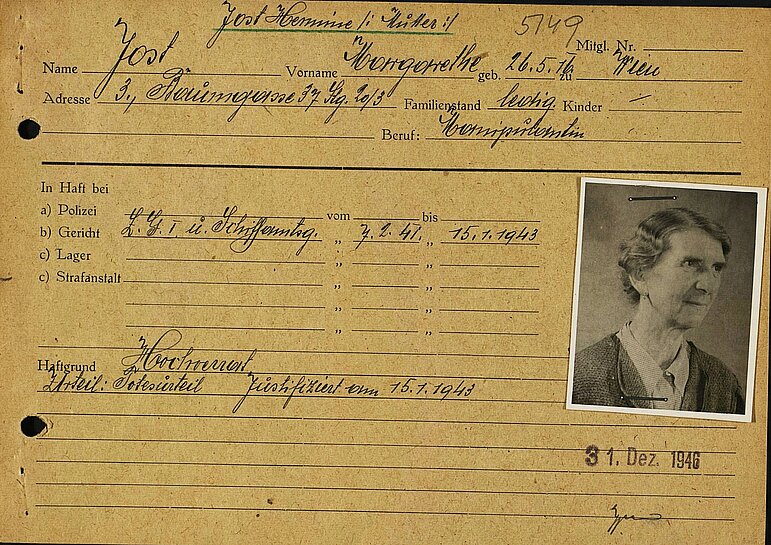 Jost Hermine /: Mutter :/
5149
Mitgl. Nr.
Name Jost Vorname Margarethe geb. 26.5.16 zu Wien
Adresse 3., Baumgasse 37 Stg. 20/3 Familienstand ledig Kinder –
Beruf: Manipulantin
In Haft bei
a) Polizei vom bis
b) Gericht L. G. I u. Schiffamtsg. „ 7.2.41. „ 15.1.1943
c) Lager „ „
c) Strafanstalt „ „
„ „
„ „
Haftgrund Hochverrat
Urteil: Todesurteil Justifiziert am 15.1.1943
31. Dez. 1946